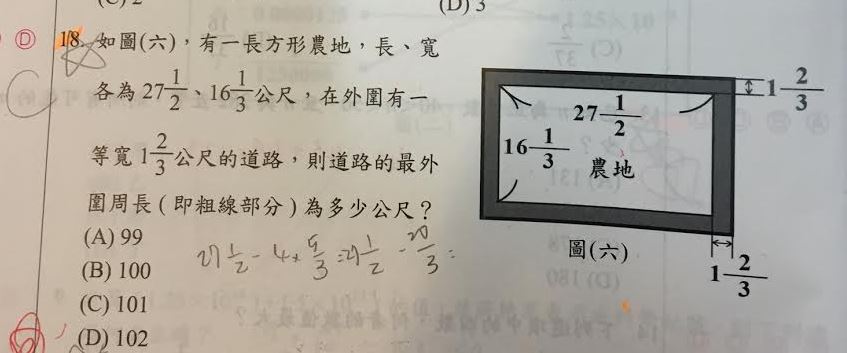 (D) 3
D 18. 如圖(六)，有一長方形農地，長、寬
各為 27 1/2、16 1/3 公尺，在外圍有一
等寬 1 2/3 公尺的道路，則道路的最外
圍周長(即粗線部分)為多少公尺？
(A) 99
(B) 100
(C) 101
(D) 102
27 1/2 - 4 × 5/3 = 27 1/2 - 20/3 =
1 2/3
27 1/2
16 1/3
農地
圖(六)
1 2/3